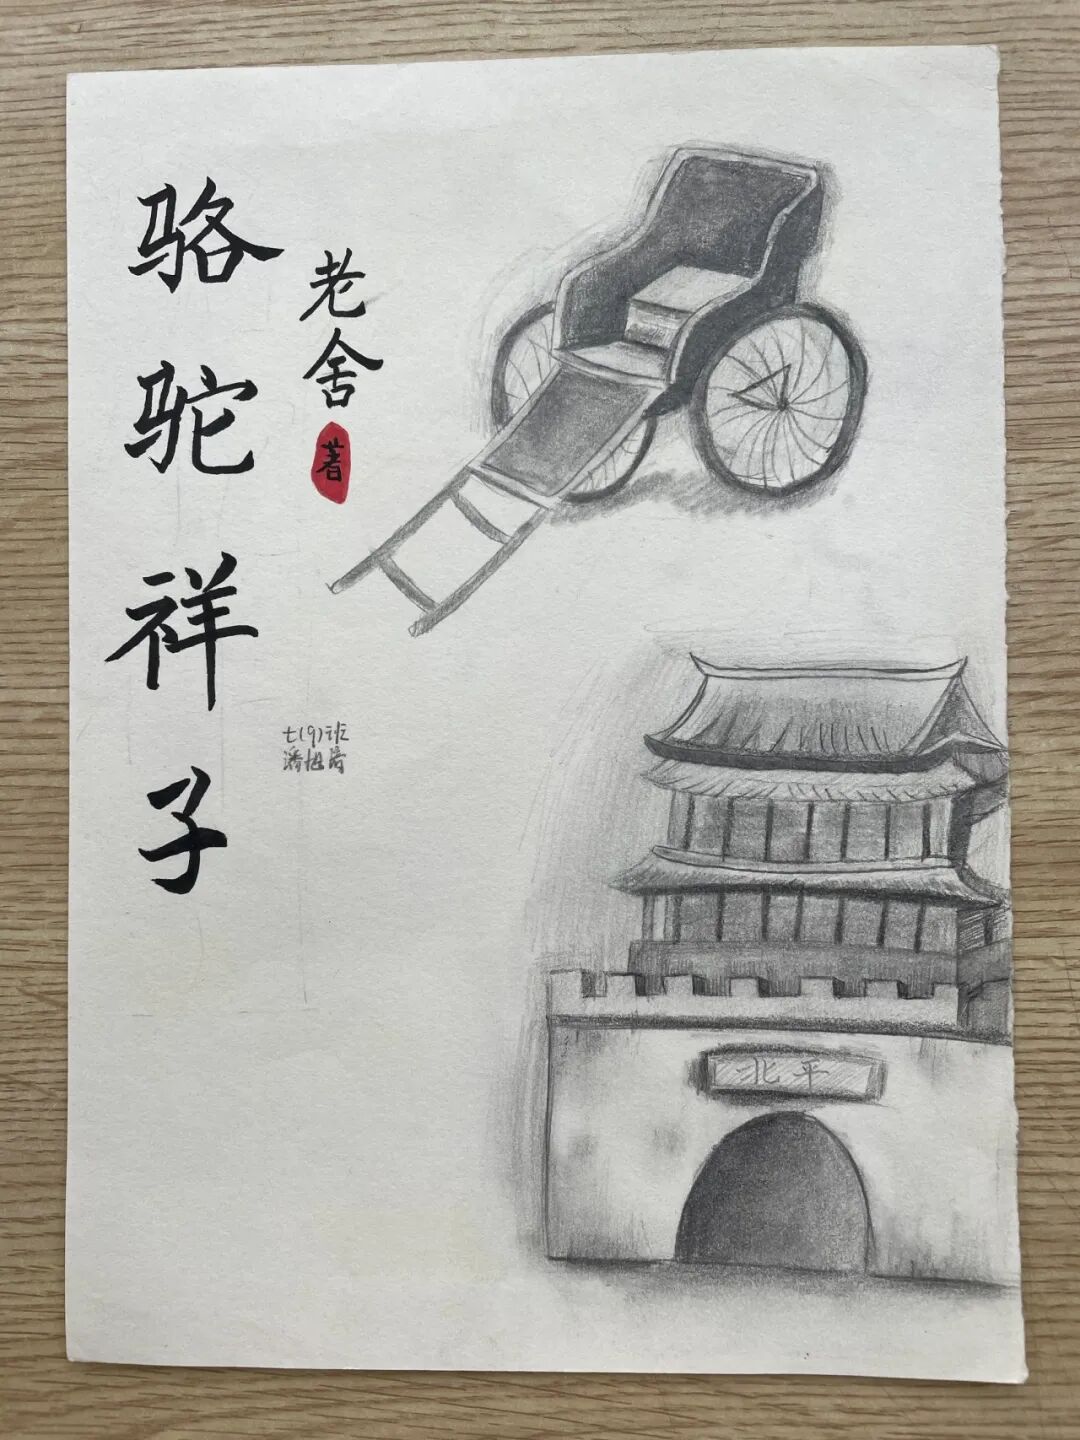 骆驼祥子
老舍
著
七(9)班
北平